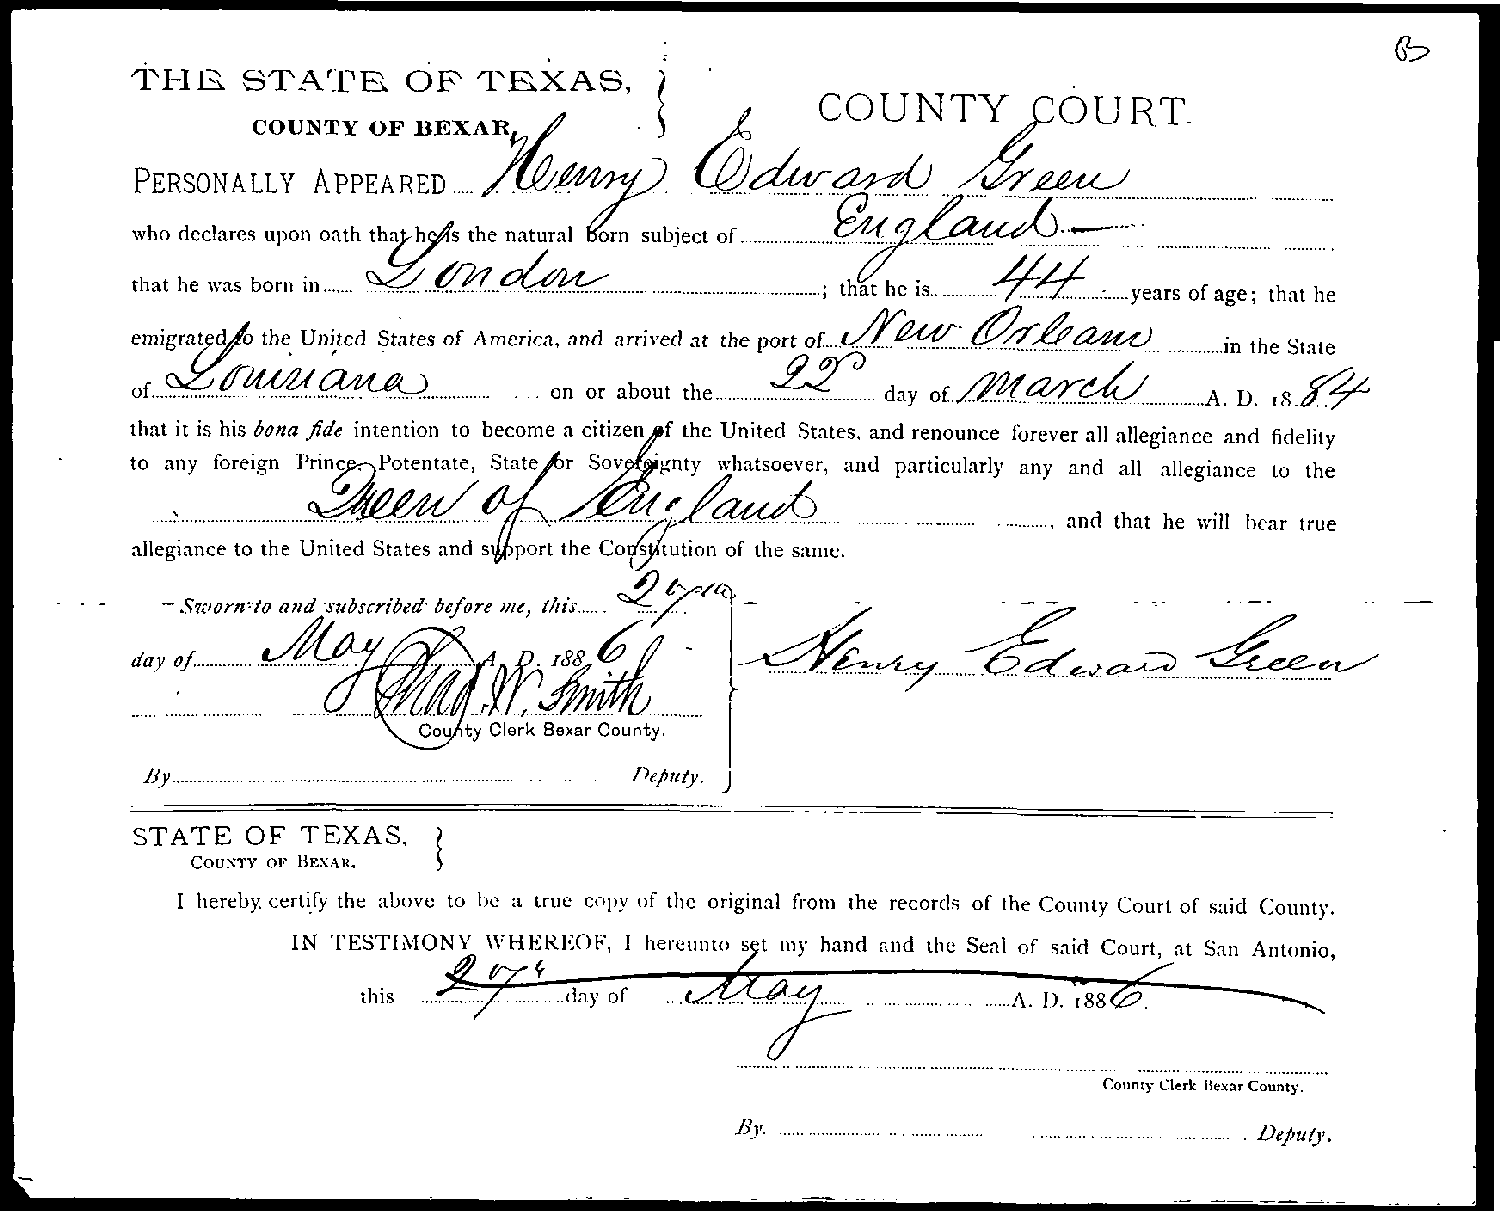 B
THE STATE OF TEXAS,
COUNTY OF BEXAR,
COUNTY COURT.
PERSONALLY APPEARED Henry Edward Green
who declares upon oath that he is the natural born subject of England
that he was born in London ; that he is 44 years of age; that he
emigrated to the United States of America, and arrived at the port of New Orleans in the State
of Louisiana on or about the 22 day of March A. D. 1884
that it is his bona fide intention to become a citizen of the United States, and renounce forever all allegiance and fidelity
to any foreign Prince, Potentate, State or Sovereignty whatsoever, and particularly any and all allegiance to the
Queen of England , and that he will bear true
allegiance to the United States and support the Constitution of the same.
Sworn to and subscribed before me, this 27th
day of May A. D. 1886
Thad. W. Smith
County Clerk Bexar County.
By Deputy.
Henry Edward Green
STATE OF TEXAS,
COUNTY OF BEXAR.
I hereby certify the above to be a true copy of the original from the records of the County Court of said County.
IN TESTIMONY WHEREOF, I hereunto set my hand and the Seal of said Court, at San Antonio,
this 27th day of May A. D. 1886.
County Clerk Bexar County.
By. Deputy.